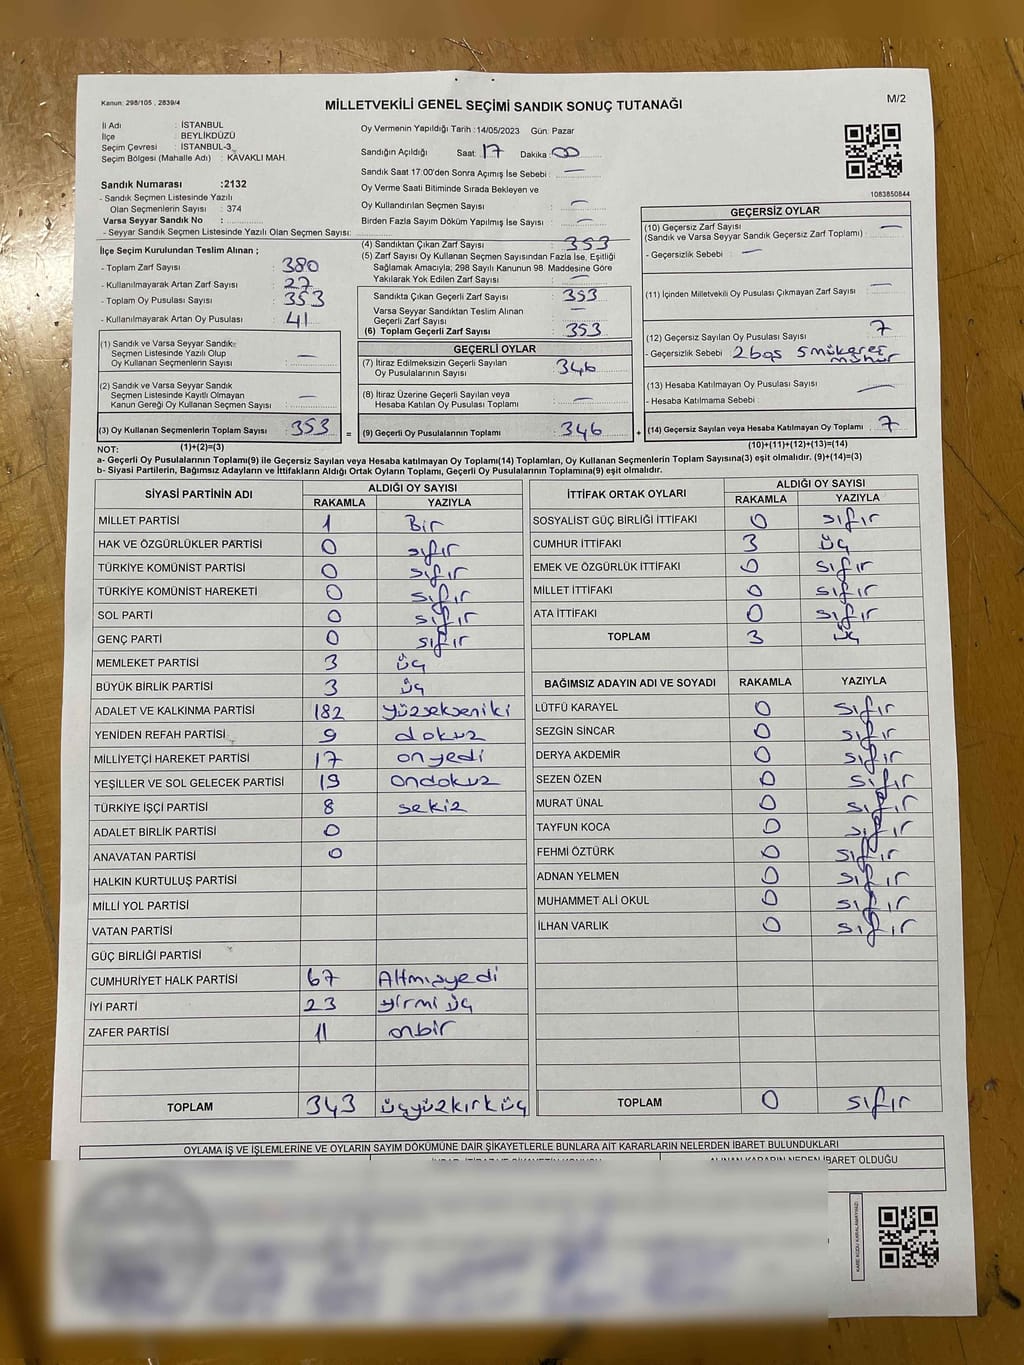 Kanun: 298/105 , 2839/4
MİLLETVEKİLİ GENEL SEÇİMİ SANDIK SONUÇ TUTANAĞI
M/2
İl Adı : İSTANBUL
İlçe : BEYLİKDÜZÜ
Seçim Çevresi : İSTANBUL-3
Seçim Bölgesi (Mahalle Adı) : KAVAKLI MAH.
Sandık Numarası :2132
- Sandık Seçmen Listesinde Yazılı
Olan Seçmenlerin Sayısı : 374
Varsa Seyyar Sandık No :
- Seyyar Sandık Seçmen Listesinde Yazılı Olan Seçmen Sayısı:
Oy Vermenin Yapıldığı Tarih :14/05/2023 Gün: Pazar
Sandığın Açıldığı Saat: 17 Dakika: 00
Sandık Saat 17:00'den Sonra Açımış İse Sebebi : —
Oy Verme Saati Bitiminde Sırada Bekleyen ve
Oy Kullandırılan Seçmen Sayısı : —
Birden Fazla Sayım Döküm Yapılmış İse Sayısı : —
1083850844
İlçe Seçim Kurulundan Teslim Alınan ;
- Toplam Zarf Sayısı : 380
- Kullanılmayarak Artan Zarf Sayısı : 27
- Toplam Oy Pusulası Sayısı : 353
- Kullanılmayarak Artan Oy Pusulası : 41
(1) Sandık ve Varsa Seyyar Sandık
Seçmen Listesinde Yazılı Olup
Oy Kullanan Seçmenlerin Sayısı : —
(2) Sandık ve Varsa Seyyar Sandık
Seçmen Listesinde Kayıtlı Olmayan
Kanun Gereği Oy Kullanan Seçmen Sayısı : —
(3) Oy Kullanan Seçmenlerin Toplam Sayısı : 353
(1)+(2)=(3)
(4) Sandıktan Çıkan Zarf Sayısı : 353
(5) Zarf Sayısı Oy Kullanan Seçmen Sayısından Fazla İse, Eşitliği
Sağlamak Amacıyla; 298 Sayılı Kanunun 98. Maddesine Göre
Yakılarak Yok Edilen Zarf Sayısı : —
Sandıkta Çıkan Geçerli Zarf Sayısı : 353
Varsa Seyyar Sandıktan Teslim Alınan
Geçerli Zarf Sayısı : —
(6) Toplam Geçerli Zarf Sayısı : 353
GEÇERLİ OYLAR
(7) İtiraz Edilmeksizin Geçerli Sayılan
Oy Pusulalarının Sayısı : 346
(8) İtiraz Üzerine Geçerli Sayılan veya
Hesaba Katılan Oy Pusulası Toplamı : —
= (9) Geçerli Oy Pusulalarının Toplamı : 346 +
GEÇERSİZ OYLAR
(10) Geçersiz Zarf Sayısı : —
(Sandık ve Varsa Seyyar Sandık Geçersiz Zarf Toplamı)
- Geçersizlik Sebebi : —
(11) İçinden Milletvekili Oy Pusulası Çıkmayan Zarf Sayısı : —
(12) Geçersiz Sayılan Oy Pusulası Sayısı : 7
- Geçersizlik Sebebi : 2 boş 5 mükerrer
mühür
(13) Hesaba Katılmayan Oy Pusulası Sayısı : —
- Hesaba Katılmama Sebebi :
(14) Geçersiz Sayılan veya Hesaba Katılmayan Oy Toplamı : 7
(10)+(11)+(12)+(13)=(14)
NOT:
a- Geçerli Oy Pusulaları Toplamı(9) ile Geçersiz Sayılan veya Hesaba katılmayan Oy Toplamı(14) Toplamları, Oy Kullanan Seçmenlerin Toplam Sayısına(3) eşit olmalıdır. (9)+(14)=(3)
b- Siyasi Partilerin, Bağımsız Adayların ve İttifakların Aldığı Ortak Oyların Toplamı, Geçerli Oy Pusulalarının Toplamına(9) eşit olmalıdır.
SİYASİ PARTİNİN ADI ALDIĞI OY SAYISI
RAKAMLA YAZIYLA
MİLLET PARTİSİ 1 Bir
HAK VE ÖZGÜRLÜKLER PARTİSİ 0 sıfır
TÜRKİYE KOMÜNİST PARTİSİ 0 sıfır
TÜRKİYE KOMÜNİST HAREKETİ 0 sıfır
SOL PARTİ 0 sıfır
GENÇ PARTİ 0 sıfır
MEMLEKET PARTİSİ 3 üç
BÜYÜK BİRLİK PARTİSİ 3 üç
ADALET VE KALKINMA PARTİSİ 182 yüzsekseniki
YENİDEN REFAH PARTİSİ 9 dokuz
MİLLİYETÇİ HAREKET PARTİSİ 17 onyedi
YEŞİLLER VE SOL GELECEK PARTİSİ 19 ondokuz
TÜRKİYE İŞÇİ PARTİSİ 8 sekiz
ADALET BİRLİK PARTİSİ 0
ANAVATAN PARTİSİ 0
HALKIN KURTULUŞ PARTİSİ
MİLLİ YOL PARTİSİ
VATAN PARTİSİ
GÜÇ BİRLİĞİ PARTİSİ
CUMHURİYET HALK PARTİSİ 67 Altmışyedi
İYİ PARTİ 23 yirmi üç
ZAFER PARTİSİ 11 onbir
TOPLAM 343 üçyüzkırküç
İTTİFAK ORTAK OYLARI ALDIĞI OY SAYISI
RAKAMLA YAZIYLA
SOSYALİST GÜÇ BİRLİĞİ İTTİFAKI 0 sıfır
CUMHUR İTTİFAKI 3 üç
EMEK VE ÖZGÜRLÜK İTTİFAKI 0 sıfır
MİLLET İTTİFAKI 0 sıfır
ATA İTTİFAKI 0 sıfır
TOPLAM 3 üç
BAĞIMSIZ ADAYIN ADI VE SOYADI RAKAMLA YAZIYLA
LÜTFÜ KARAYEL 0 sıfır
SEZGİN SİNCAR 0 sıfır
DERYA AKDEMİR 0 sıfır
SEZEN ÖZEN 0 sıfır
MURAT ÜNAL 0 sıfır
TAYFUN KOCA 0 sıfır
FEHMİ ÖZTÜRK 0 sıfır
ADNAN YELMEN 0 sıfır
MUHAMMET ALİ OKUL 0 sıfır
İLHAN VARLIK 0 sıfır
TOPLAM 0 sıfır
OYLAMA İŞ VE İŞLEMLERİNE VE OYLARIN SAYIM DÖKÜMÜNE DAİR ŞİKAYETLERLE BUNLARA AİT KARARLARIN NELERDEN İBARET BULUNDUKLARI
ALINAN KARARIN NEDEN İBARET OLDUĞU
KARE KODU KARALAMAYINIZ!